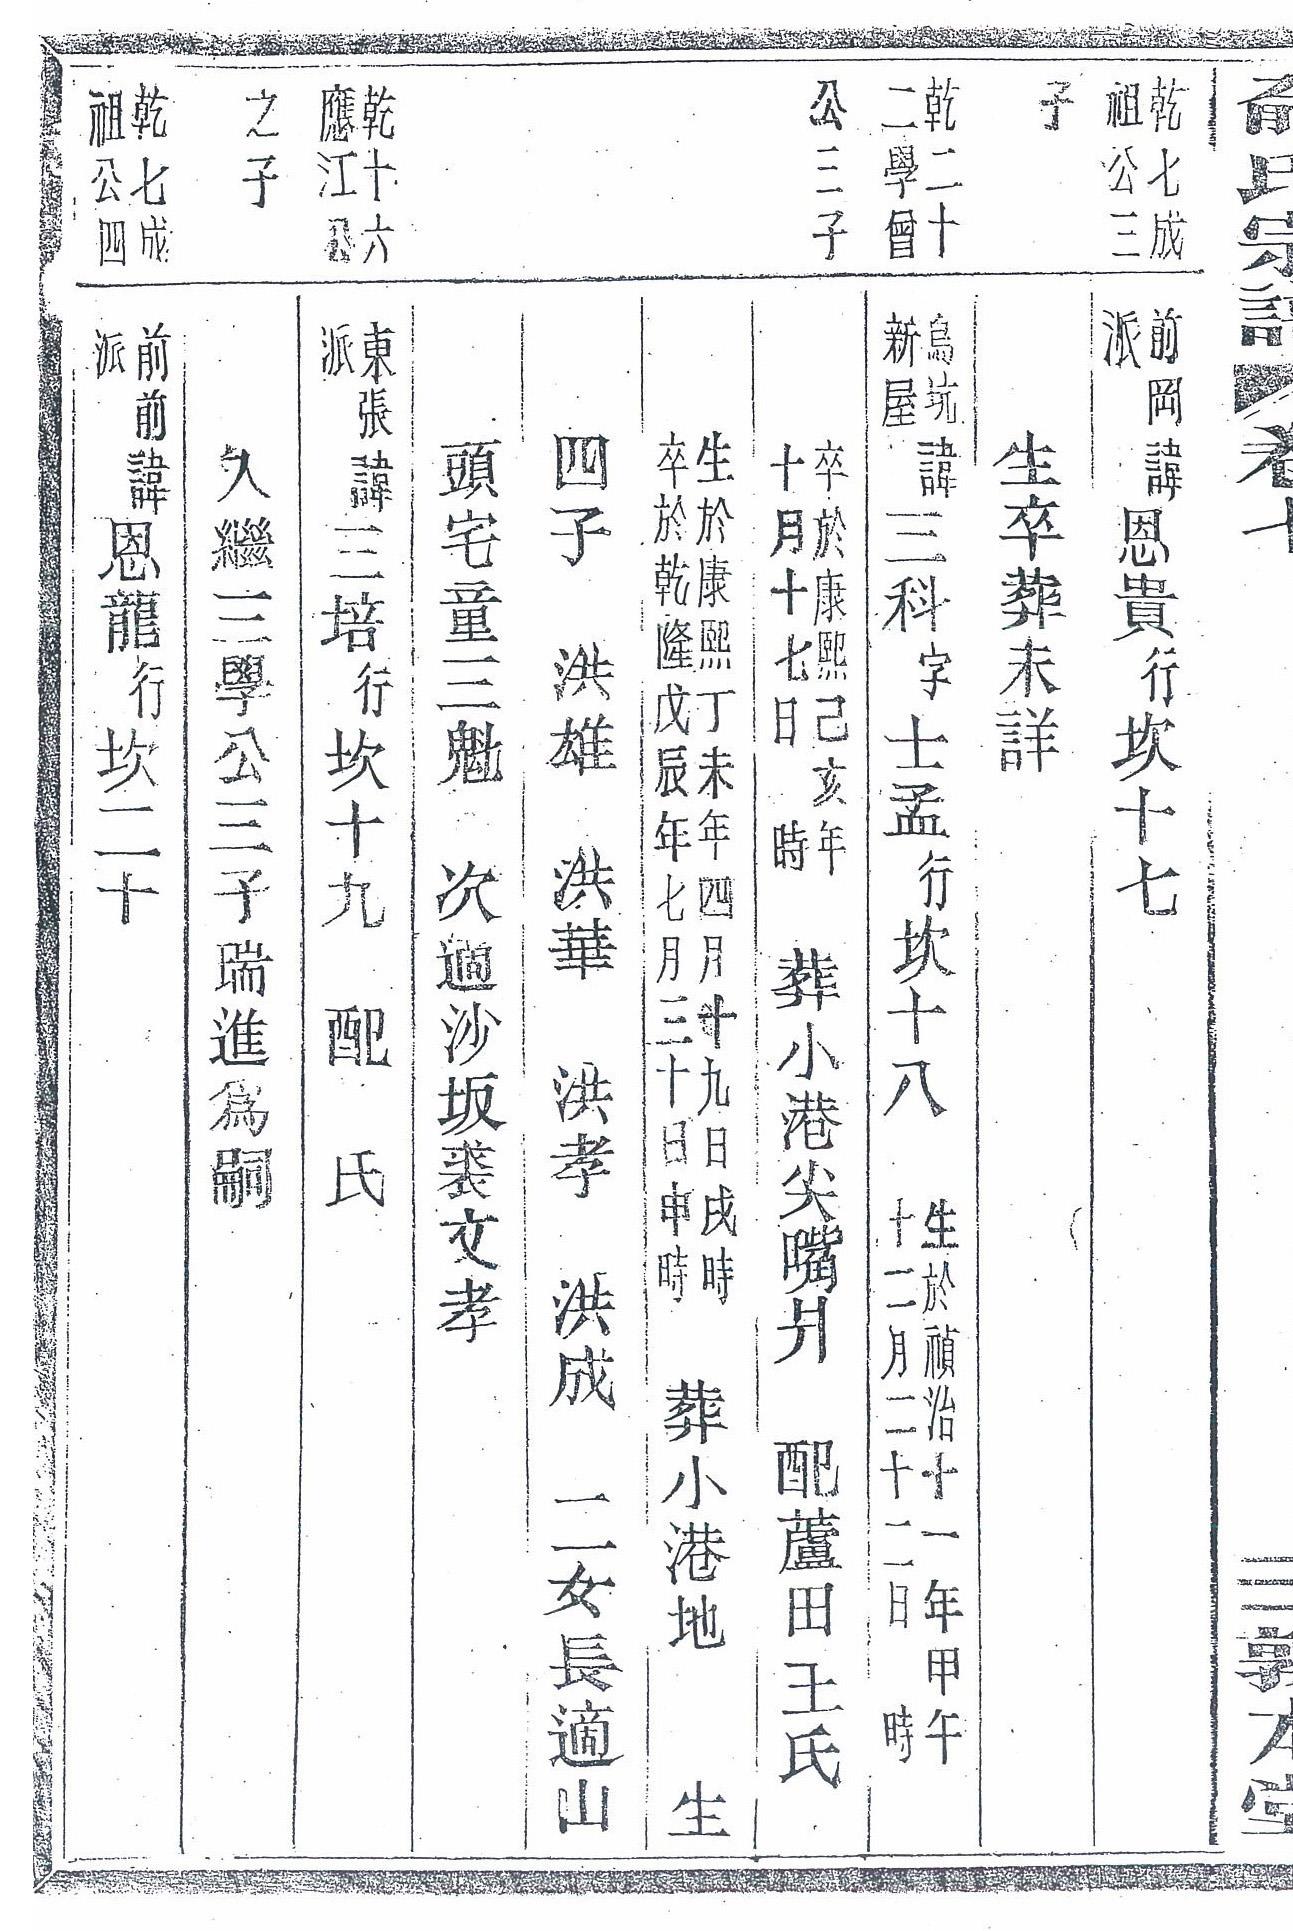 俞氏宗譜 卷十
三 敦本堂
乾七成
祖公三
子
前岡
派
諱恩貴行坎十七
生卒葬未詳
乾二十
二學曾
公三子
烏坑
新屋
諱三科字士孟行坎十八
生於禎治十一年甲午
十二月二十二日 時
卒於康熙己亥年
十月十七日 時
葬小港尖嘴爿 配蘆田王氏
生於康熙丁未年四月十九日戌時
卒於乾隆戊辰年七月三十日申時
葬小港地 生
四子 洪雄 洪華 洪孝 洪成 二女長適山
頭宅童三魁 次適沙坂裘文孝
乾十六
應江公
之子
東張
派
諱三培行坎十九 配 氏
入繼三學公三子瑞進爲嗣
乾七成
祖公四
前前
派
諱恩龍行坎二十